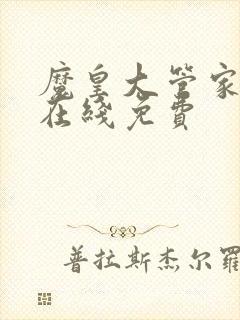 魔皇大管家
在线免费
普拉斯杰尔罗